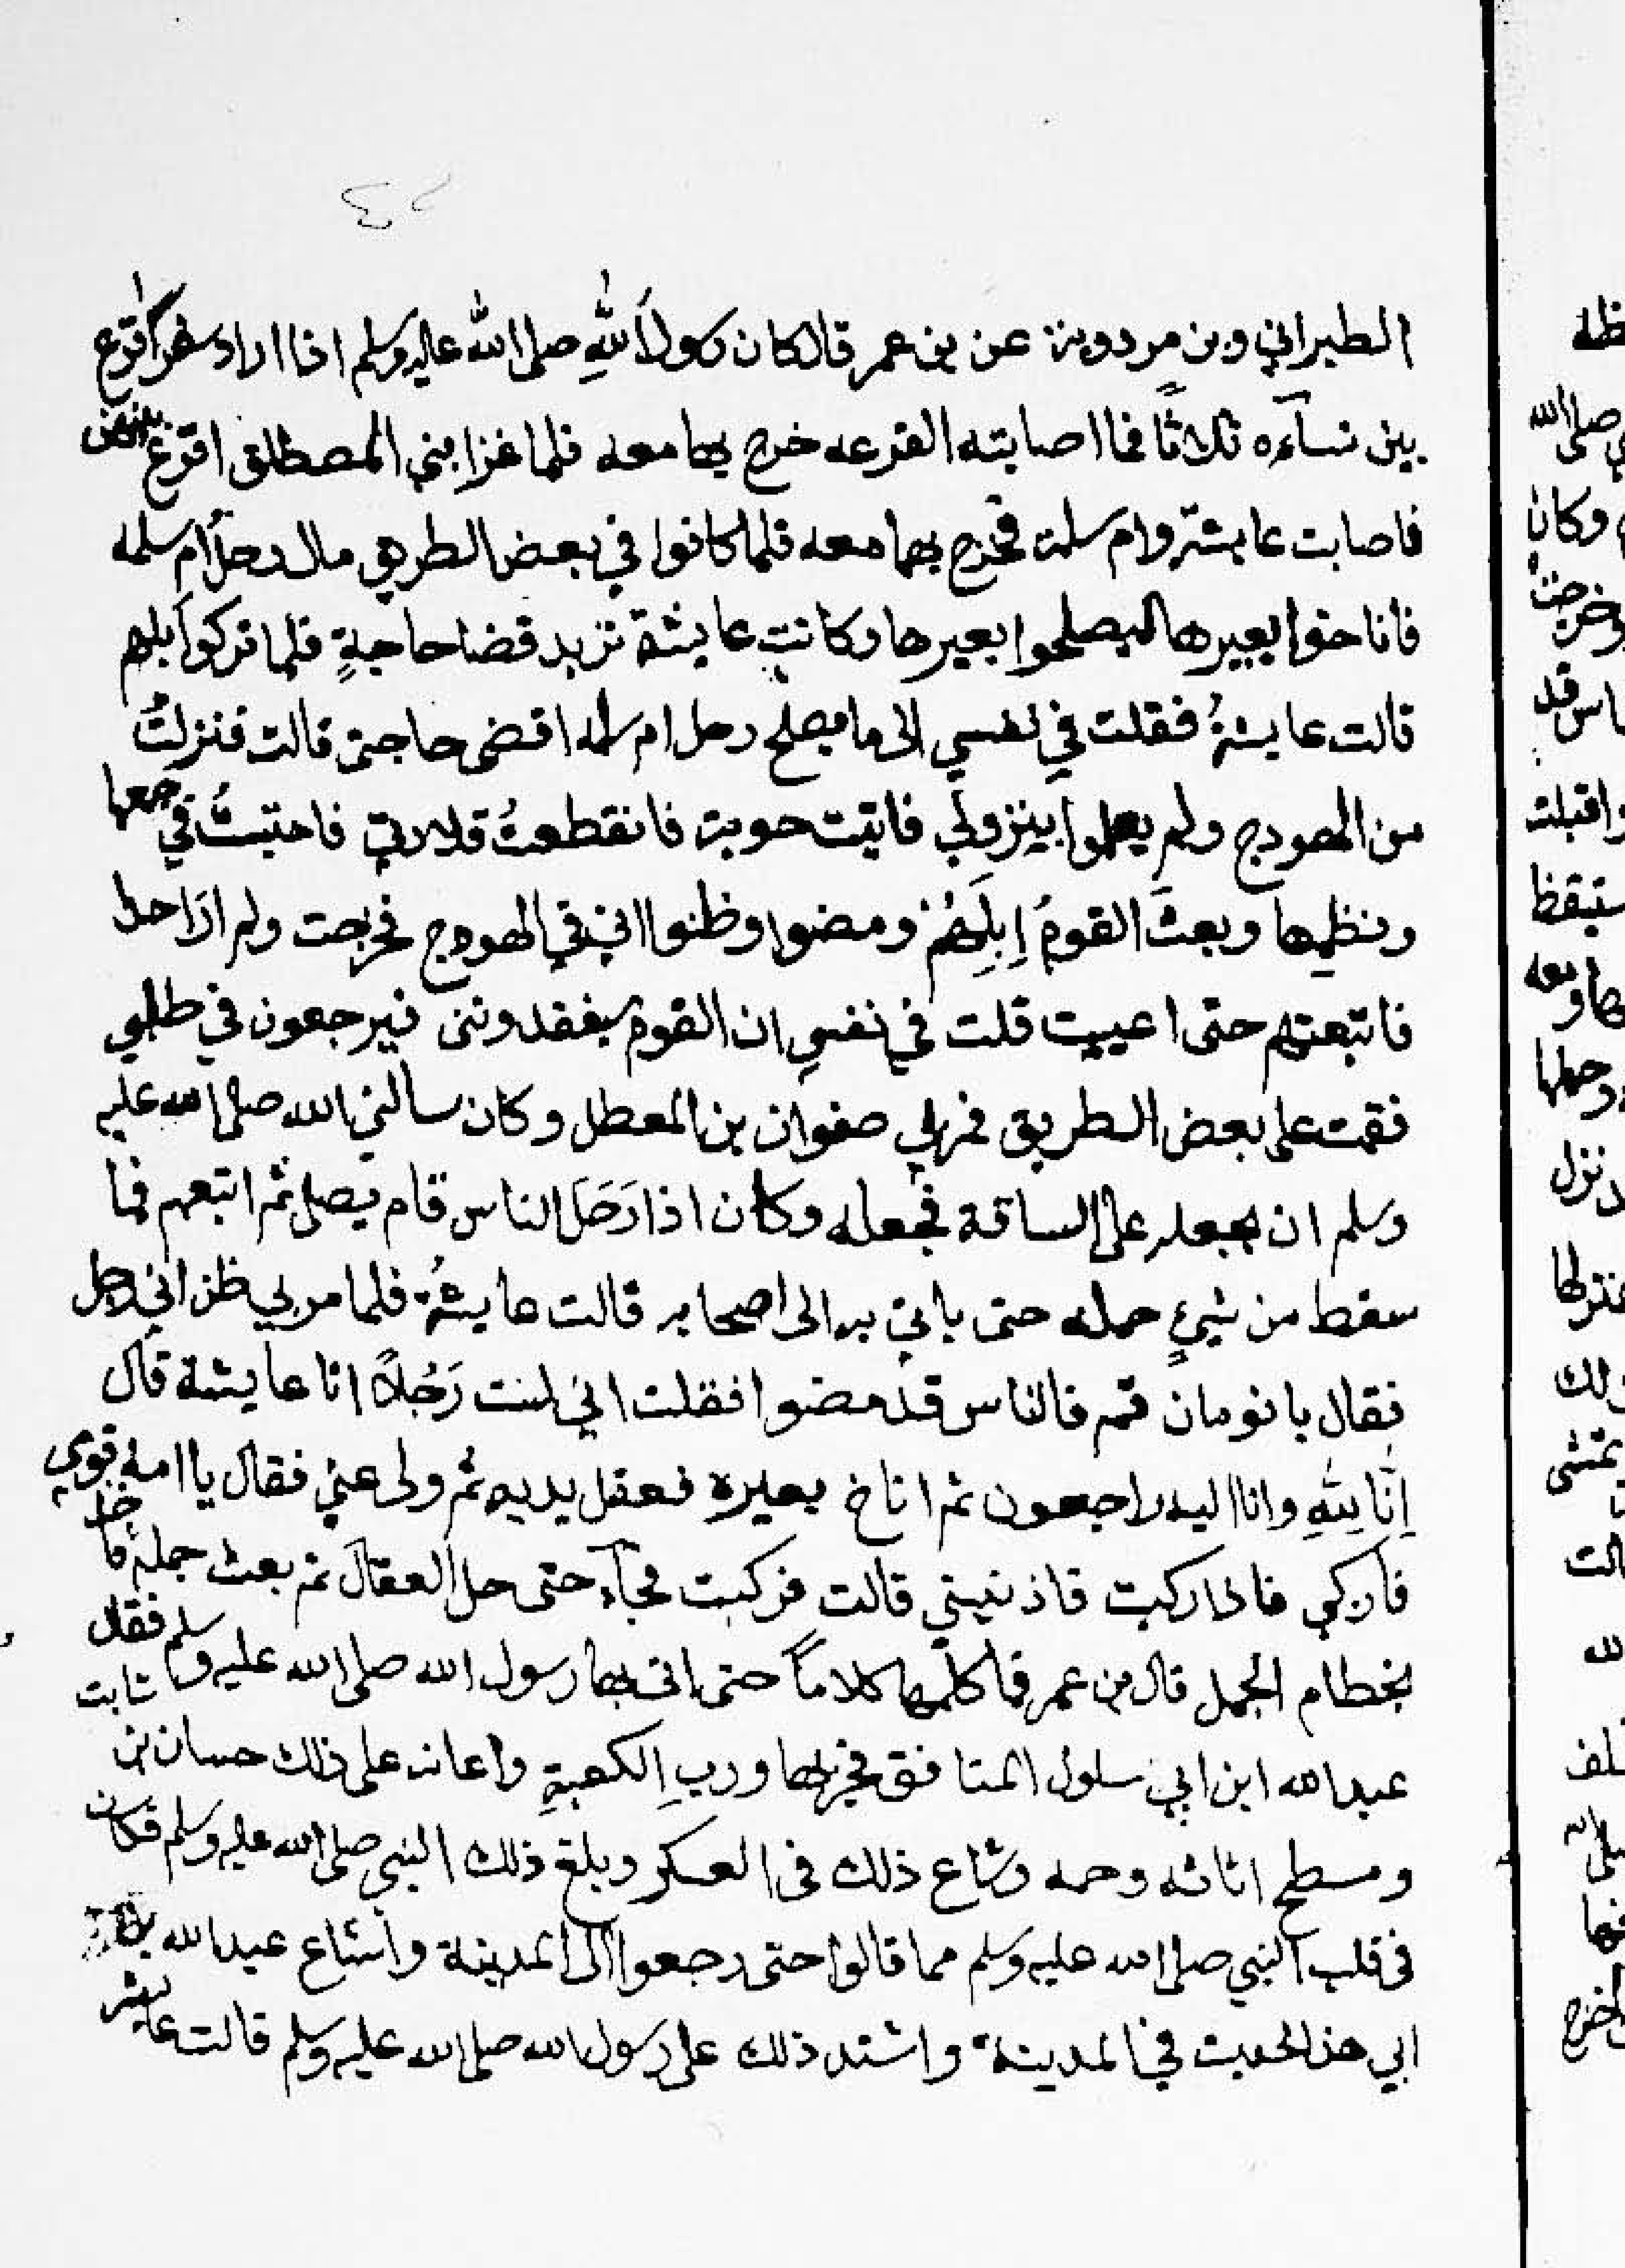 الطبراني وبن مردوية عن بن عمر قال كان رسول اللهِ صلى الله عليه وسلم اذا اراد سفرا اقرع
بين نسآءه ثلاثًا فما اصابته القرعه خرج بها معه فلما غزا بني المصطلق اقرع بينهن
فاصابت عايشة وام سلمة فخرج بهما معه فلما كانوا في بعض الطريق مال رحل ام سلمه
فاناخوا بعيرها ليصلحوا بعيرها وكانت عايشة تريد قضا حاجةٍ فلما تركوا ابلهم
قالت عايشةُ فقلت في نفسي الى ما يصلح رحل ام سلمه اقضى حاجتى قالت فنزلتُ
من الهودج ولم يعلموا بنزولي فاتيت حوبة فانقطعتُ قلادتي فاحتبستُ في جمعها
ونظمها وبعثَ القومُ اِبِلَهُمْ ومضوا وظنوا اني في الهودج فخرجت ولم ارَ احدا
فاتبعتهم حتى اعييت قلت في نفسي ان القوم سيفقدوننى فيرجعون في طلبي
فقمت على بعض الطريق فمر بي صفوان بن المعطل وكان سال النبي الله صلى الله عليه
وسلم ان يجعله على الساقة فجعله وكان اذا رَحَلَ الناس قام يصلى ثم اتبعهم فما
سقط من شيءٍ حمله حتى ياتي به الى اصحابه قالت عايشةُ فلما مر بي ظن اني رجل
فقال يا نومان قم فالناس قد مضوا فقلت اني لست رَجُلاً انا عايشة قال
اِنَّا لِلّٰهِ وانا اليه راجعون ثم اناخ بعيره فعقل يديه ثم ولى عني فقال يا امة قومي
فاركبي فاذا ركبت فاذنيني قالت فركبت فجآء حتى حل العقال ثم بعث جمله فاخذ
بخطام الجمل قال بن عمر فما كلمها كلاماً حتى اتى بها رسول الله صلى الله عليه وسلم فقال
عبد الله ابن ابي سلول المنافق فجر بها وربِ الكعبةِ واعانه على ذلك حسان بن ثابت
ومسطح اثاثه وحمه وشاع ذلك فى العسكر وبلغ ذلك النبي صلى الله عليه وسلم فكان
فى قلب النبي صلى الله عليه وسلم مما قالوا حتى رجعوا الى المدينة واشاع عبد الله بن
ابي هذ الحديث في المدينة واشتد ذلك على رسول الله صلى الله عليه وسلم قالت عايشه